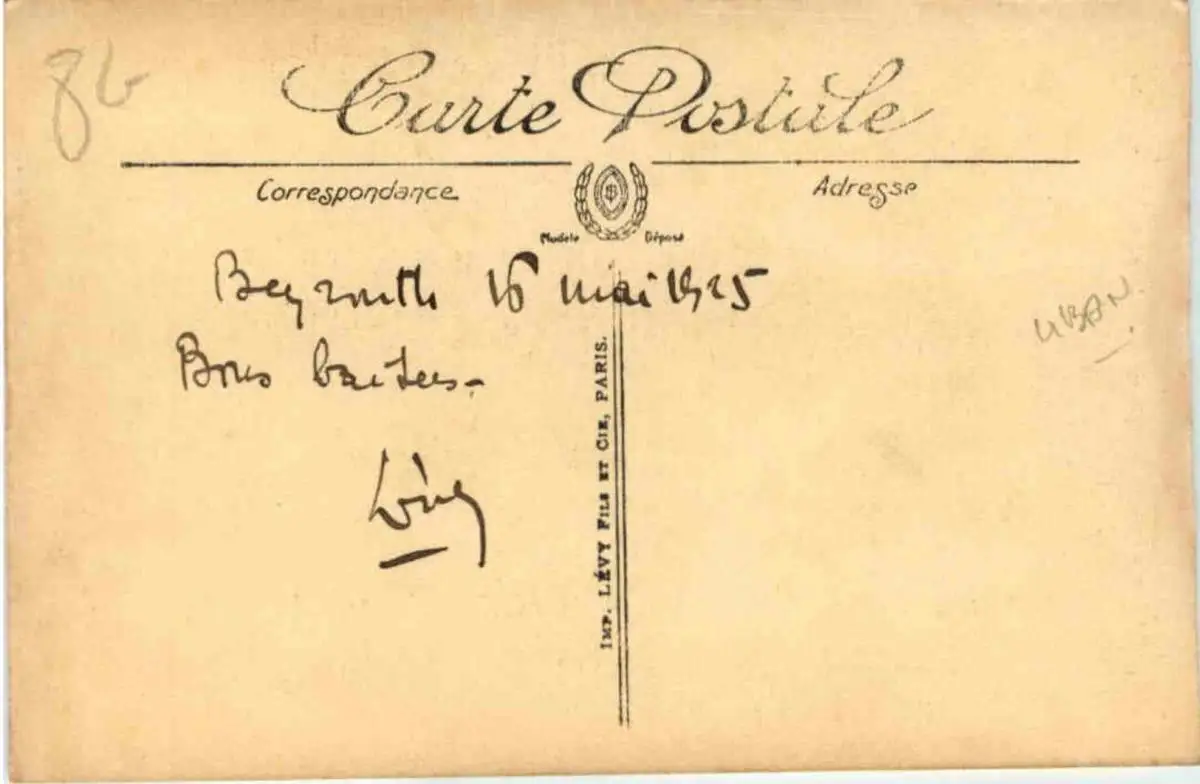 Carte Postale
Correspondance
Adresse
Modèle Déposé
Beyrouth 16 mai 1925
Bons baisers.
IMP. LÉVY FILS ET CIE, PARIS.
LIBAN